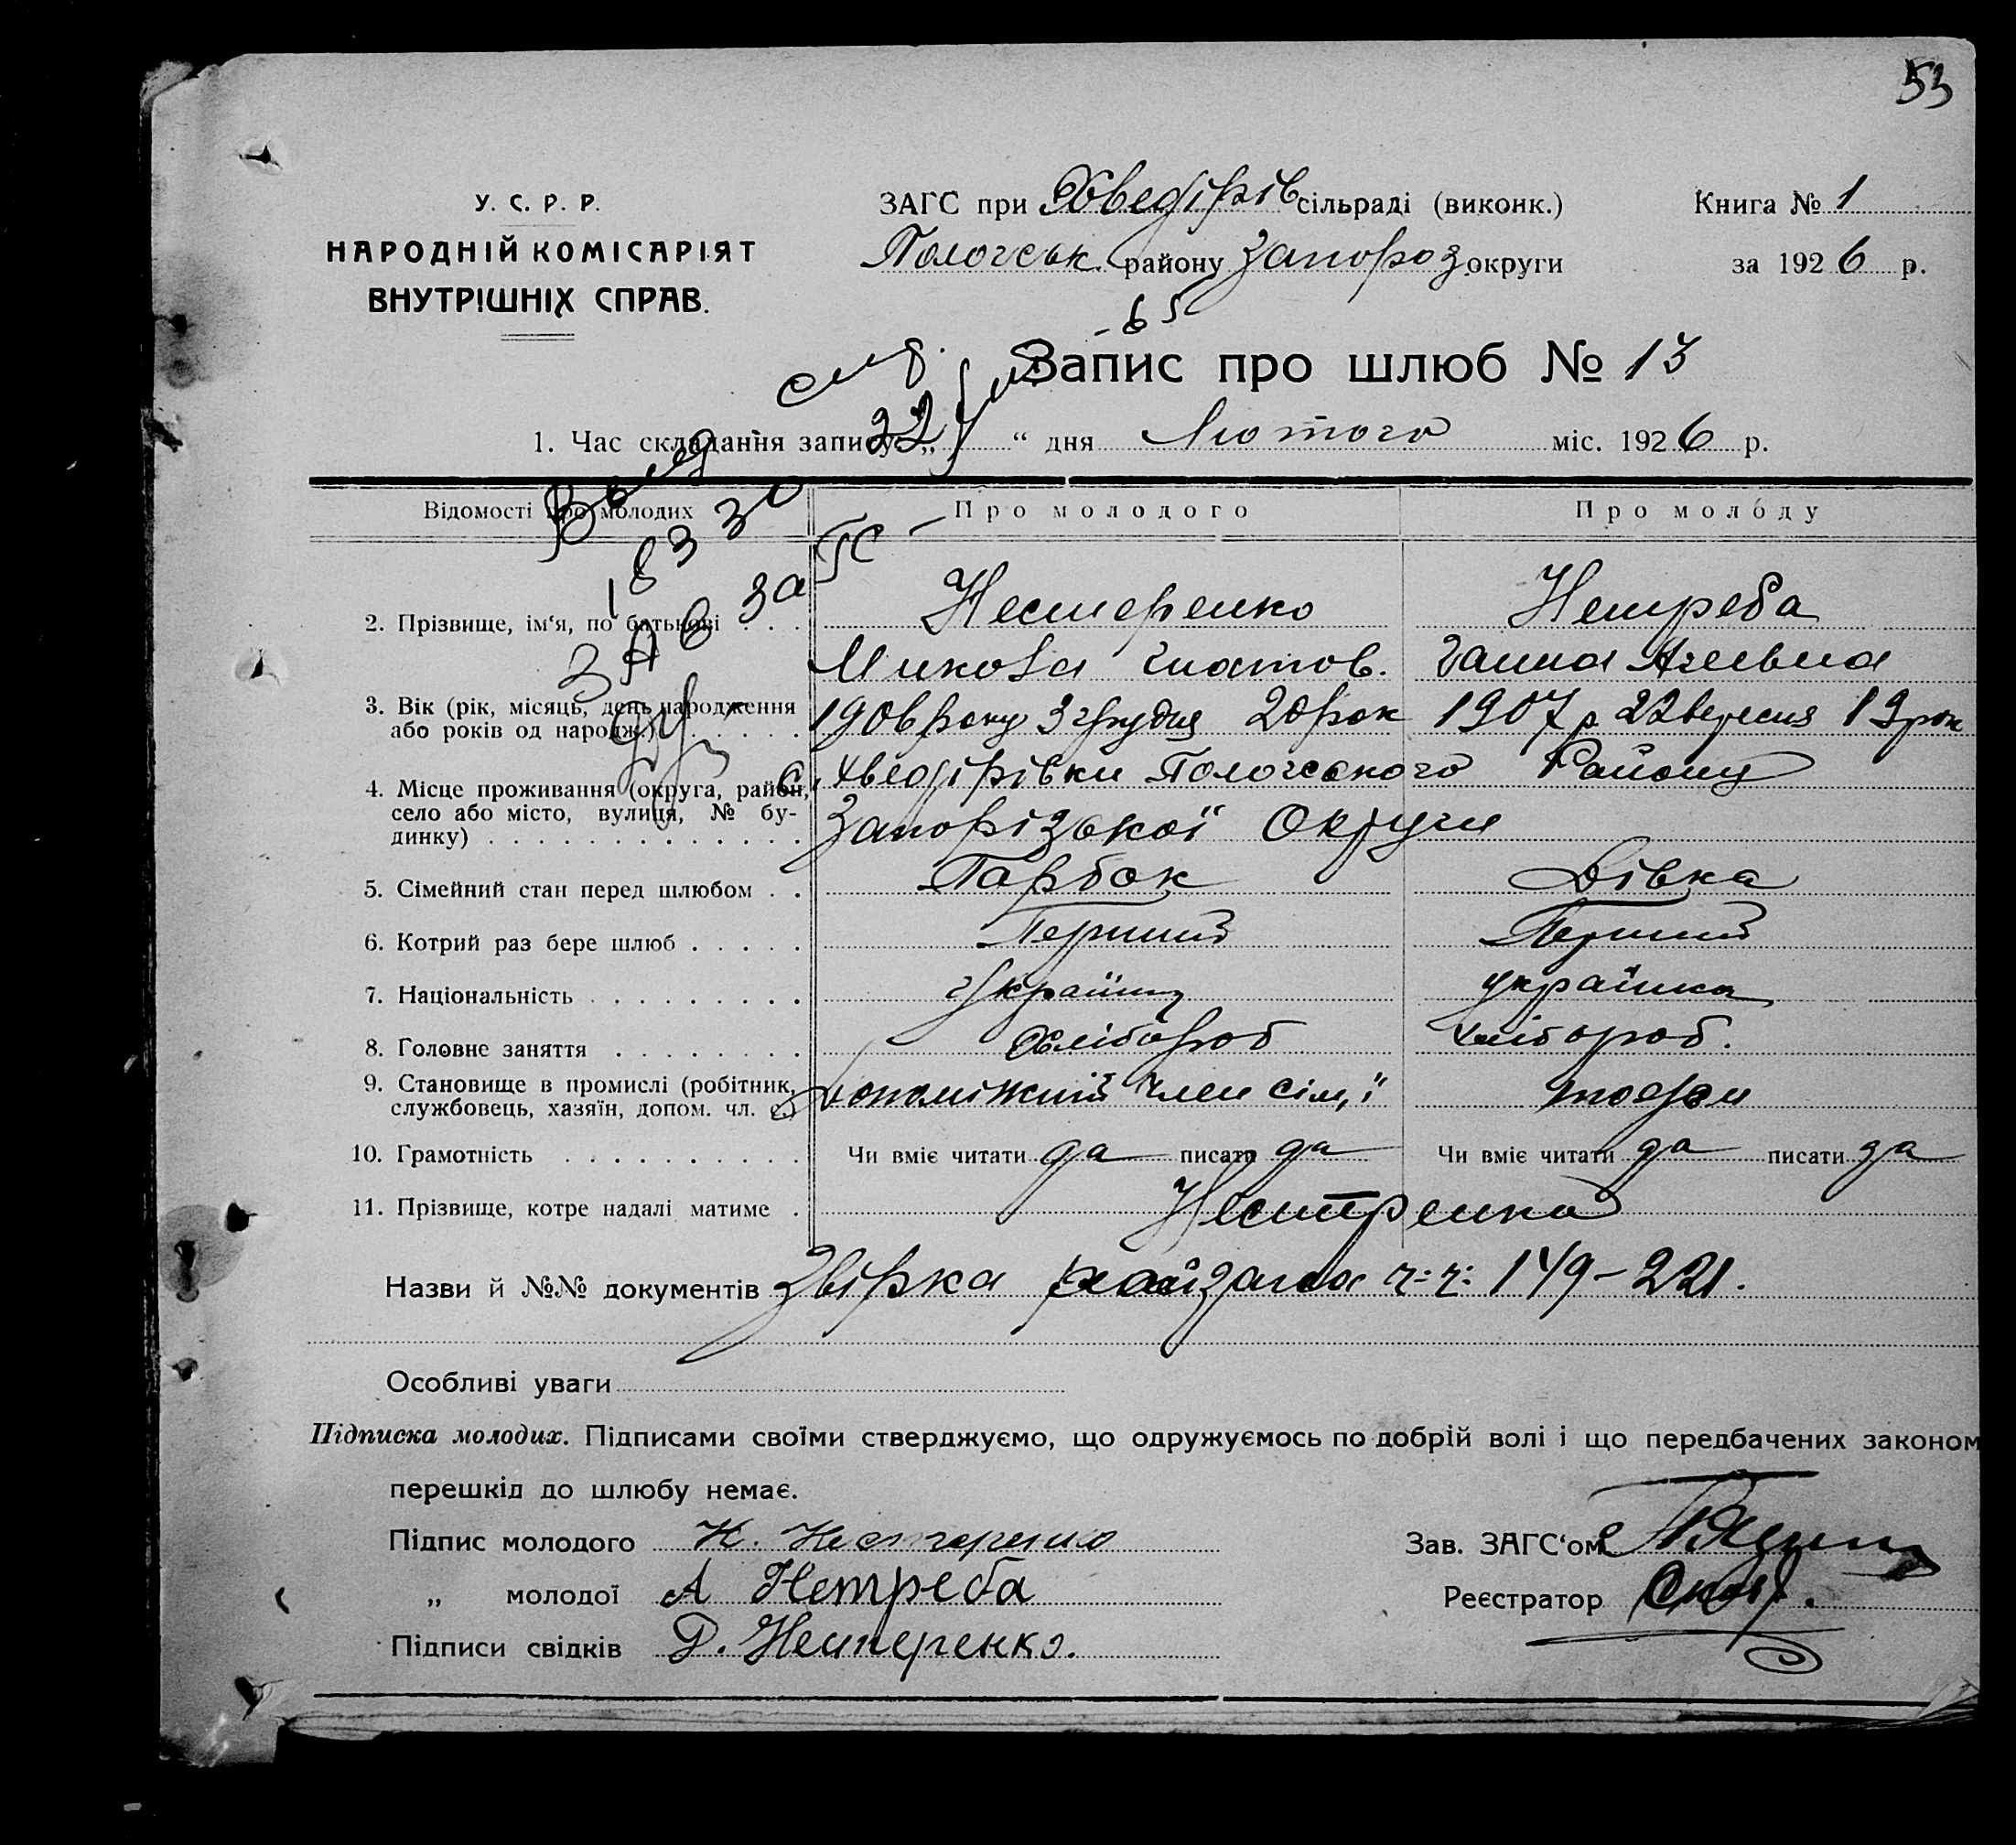 53
У. С. Р. Р.
НАРОДНІЙ КОМІСАРІЯТ
ВНУТРІШНІХ СПРАВ.
ЗАГС при Хведірів сільраді (виконк.)
Пологськ. району Запороз округи
Книга № 1
за 1926 р.
Запис про шлюб № 13
1. Час складання запису „22“ дня Лютого міс. 1926 р.
Відомості про молодих
Про молодого
Про молоду
2. Прізвище, ім‘я, по батькові . . .
Нестеренко
Микола Гнатов.
Нетреба
Ганна
3. Вік (рік, місяць, день народження
або років од народж.) . . . . .
1906 року 3 грудня 20 рок
1907 р 22 вересня 19 рок
4. Місце проживання (округа, район,
село або місто, вулиця, № бу-
динку) . . . . . . . . . . . .
с. Хведірівки Пологського Району
Запорізської Округи
5. Сімейний стан перед шлюбом . .
Парбок
Дівка
6. Котрий раз бере шлюб . . . . .
Перший
Перший
7. Національність . . . . . . . . .
Україниц
українка
8. Головне заняття . . . . . . . .
Хлібороб
хлібороб.
9. Становище в промислі (робітник,
службовець, хазяїн, допом. чл. с.)
Допоміжний член сім,ї
тоже
10. Грамотність . . . . . . . . . .
Чи вміє читати да писати да
Чи вміє читати да писати да
11. Прізвище, котре надалі матиме .
Нестеренко
Назви й №№ документів Звірка райзагса ч: ч: 149-221.
Особливі уваги
Підписка молодих. Підписами своїми стверджуємо, що одружуємось по добрій волі і що передбачених законом
перешкід до шлюбу немає.
Підпис молодого Н. Нестеренко
„ молодої А Нетреба
Підписи свідків Р. Нестеренко.
Зав. ЗАГС‘ом
Реєстратор